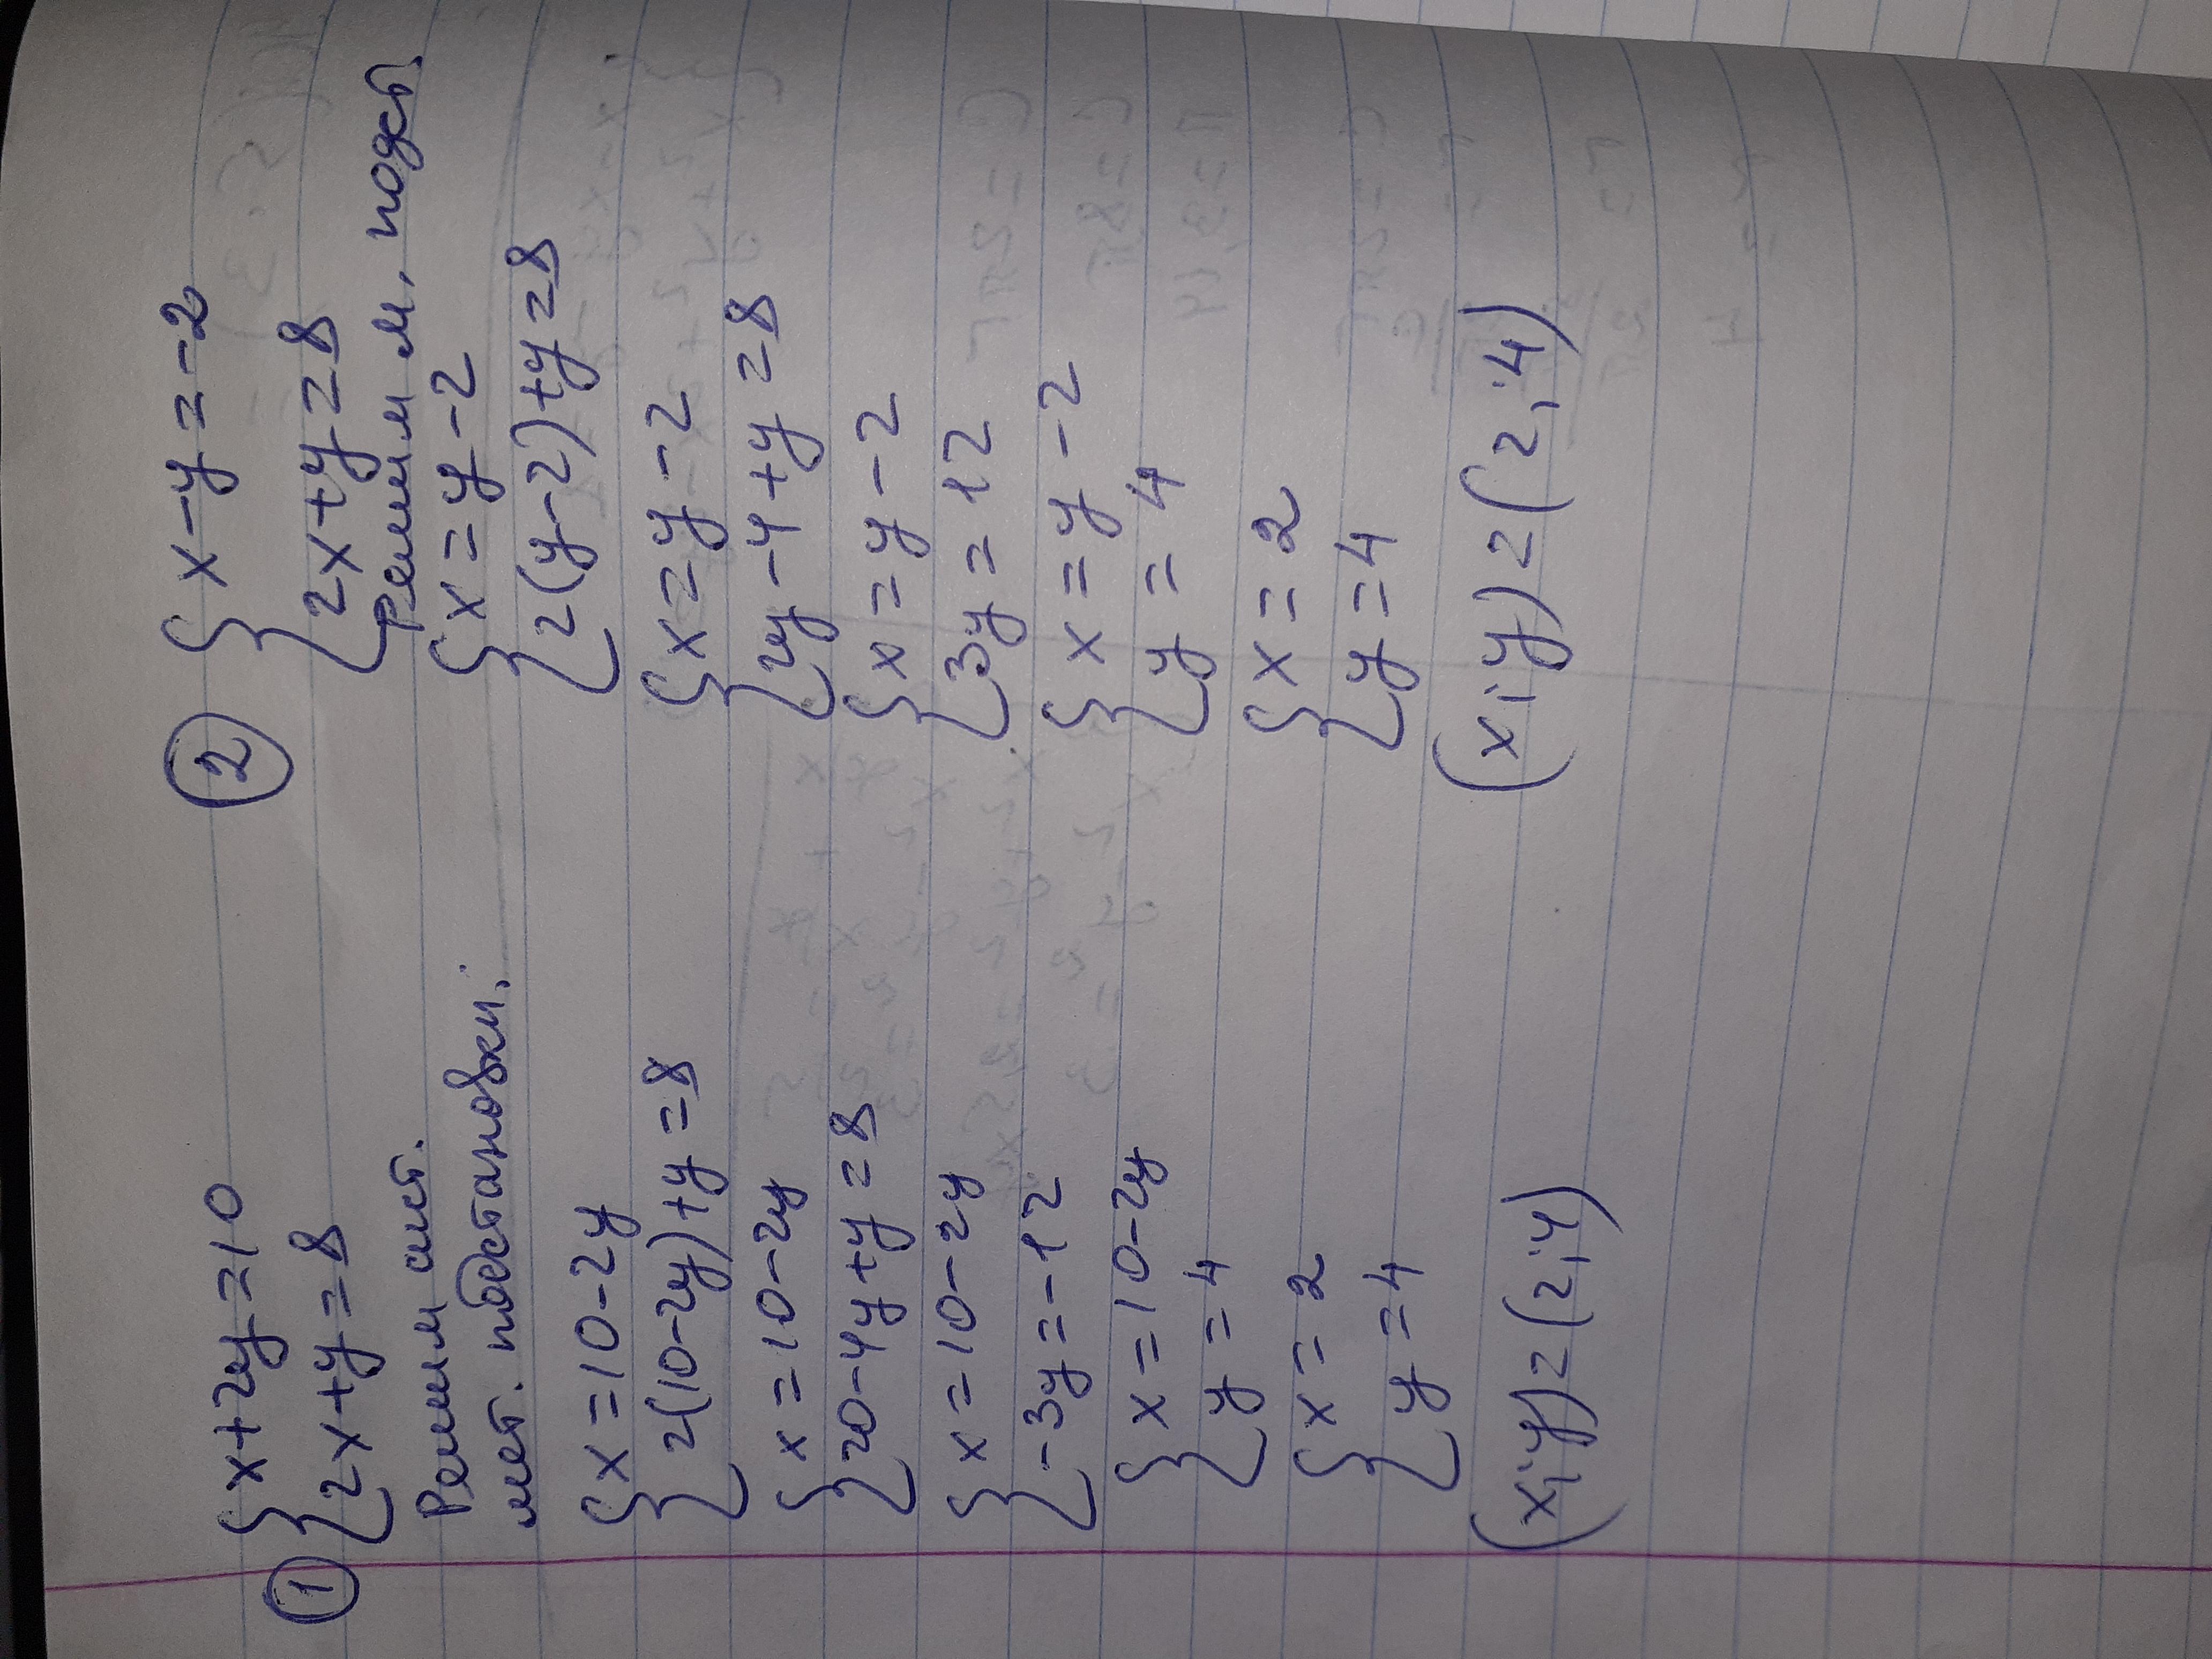 ① { x+2y=10
{ 2x+y=8
Решим сист.
мет. подстановки.
{ x=10-2y
{ 2(10-2y)+y=8
{ x=10-2y
{ 20-4y+y=8
{ x=10-2y
{ -3y=-12
{ x=10-2y
{ y=4
{ x=2
{ y=4
(x;y)=(2;4)
② { x-y=-2
{ 2x+y=8
Решим м. подст.
{ x=y-2
{ 2(y-2)+y=8
{ x=y-2
{ 2y-4+y=8
{ x=y-2
{ 3y=12
{ x=y-2
{ y=4
{ x=2
{ y=4
(x;y)=(2;4)